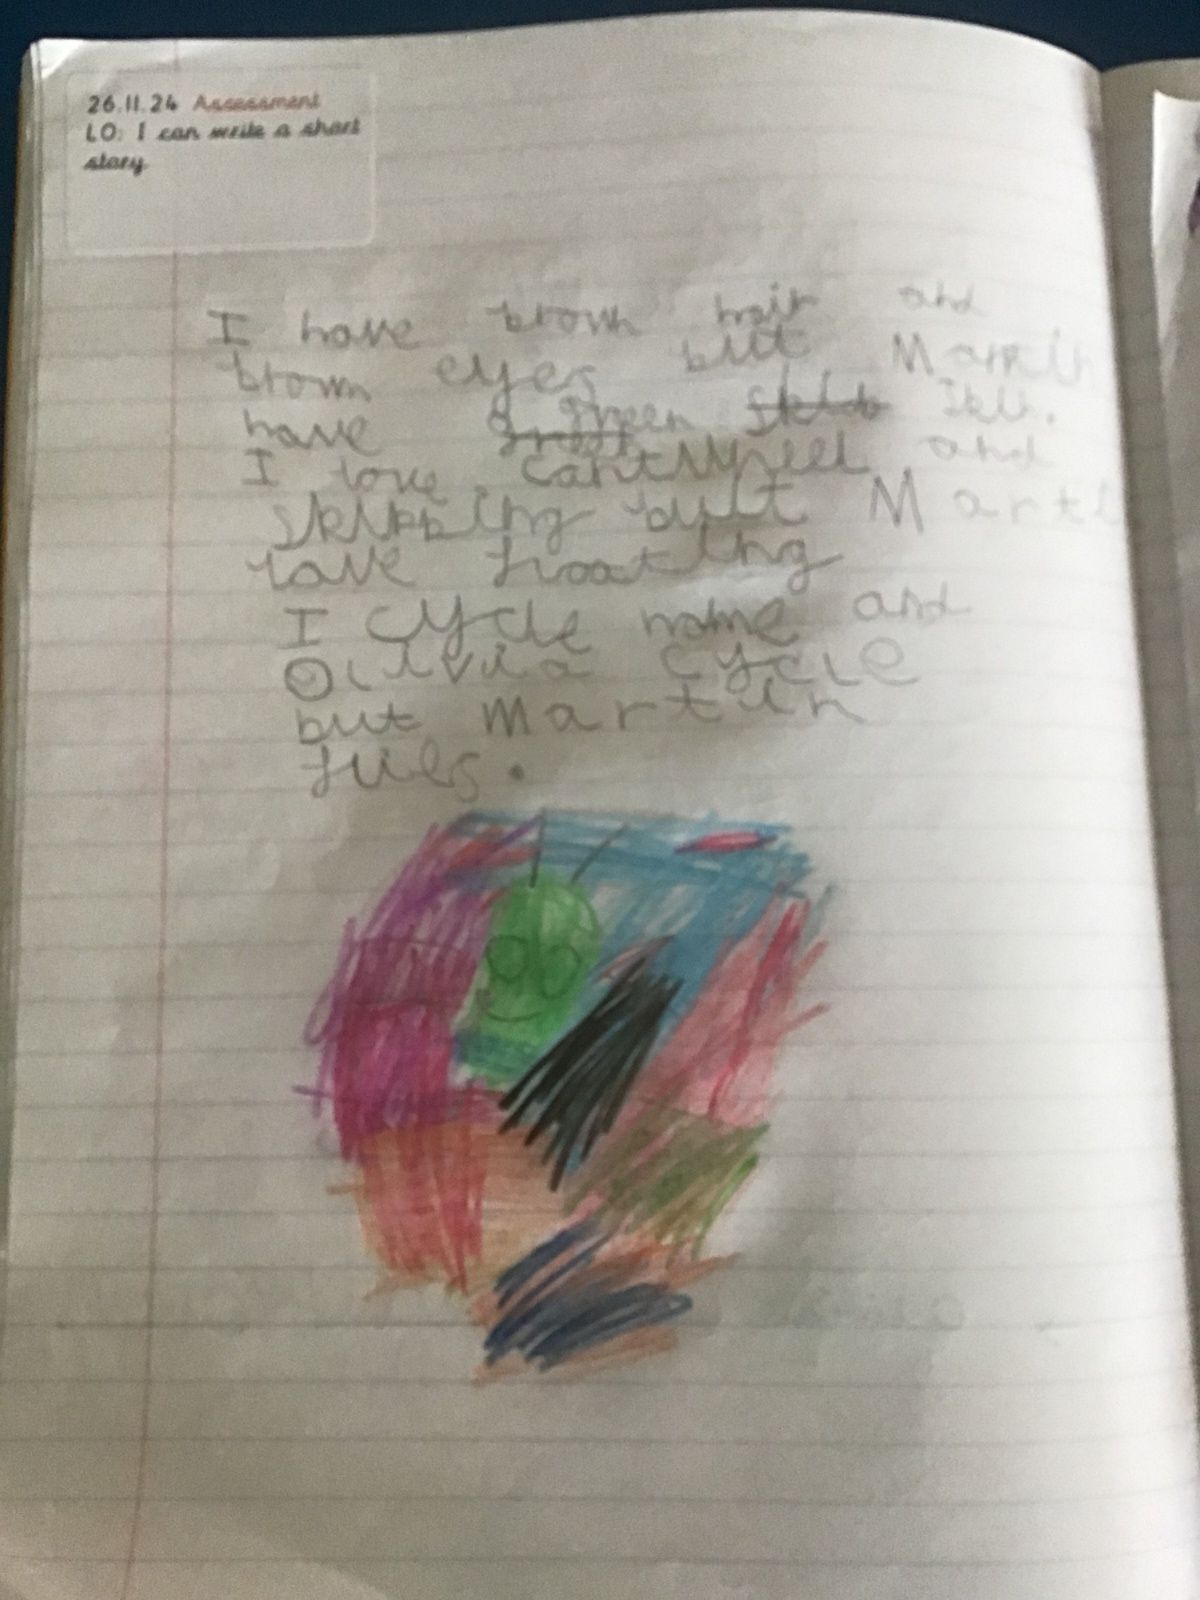 26.11.24 Assessment
LO: I can write a short
story.
I have brown hair and
brown eyes but Martin
have green
I love cantwheel and
skipping but Marti
love floating
I cycle home and
Olivia cycle
but Martin